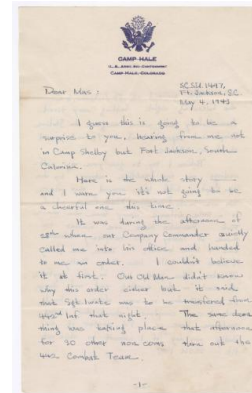 CAMP HALE
CAMP HALE, COLORADO
SCSU, 1497,
Ft. Jackson, S.C.
May 4, 1943
Dear Miss :
I guess this is going to be a
surprise to you, hearing from me not
in Camp Shelby but Fort Jackson, South
Carolina.
Here is the whole story
and I warn you it's not going to be
a cheerful one this time.
It was during the afternoon of
when our Company Commander quietly
called me into his office and handed
to me an order. I couldn't believe
it at first. Our Old Man didn't know
why this order either but it said
that Sgt. was to be transfered from
442nd Inf that night. The same darn
thing was taking place that afternoon
for 20 other non coms from out the
442 Combat Team.
-1-